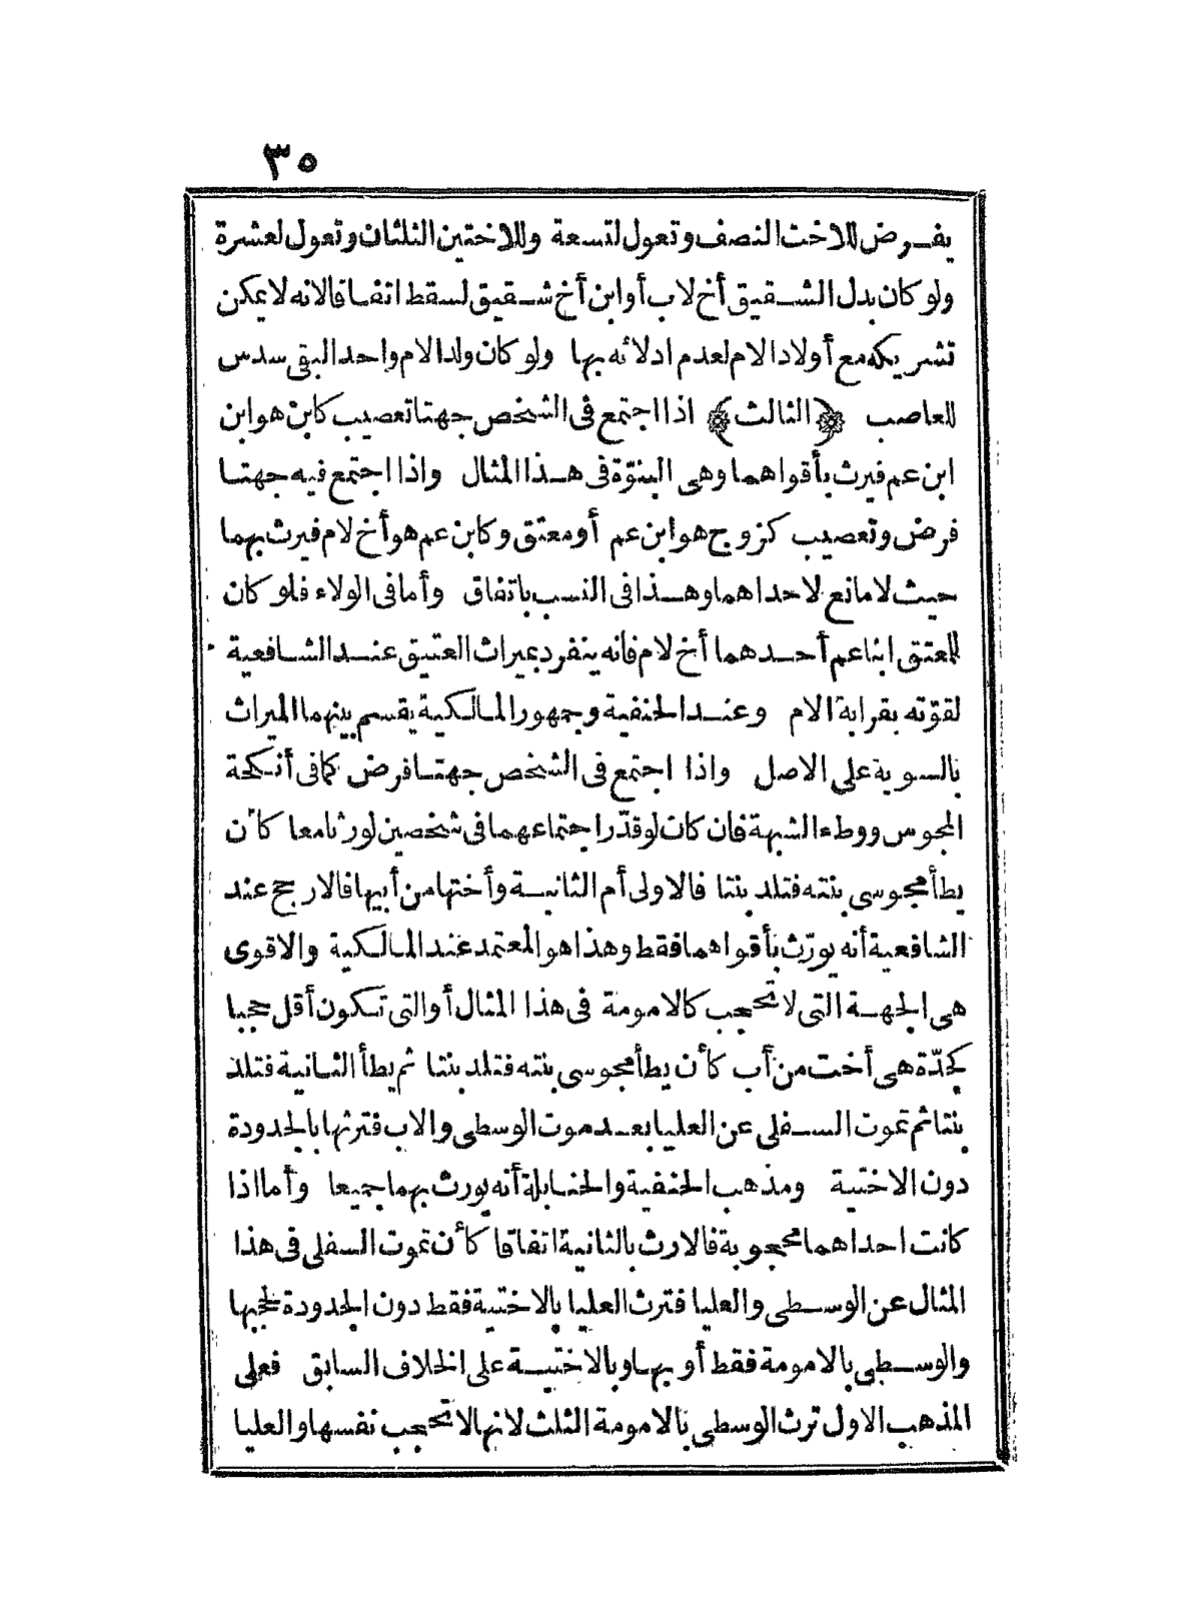 ٣٥
يفرض للاخت النصف وتعول لتسعة وللاختين الثلثان وتعول لعشرة
ولو كان بدل الشقيق أخ لاب أو ابن أخ شقيق لسقط اتفاقا لانه لا يمكن
تشريكه مع أولاد الام لعدم ادلائه بها ولو كان ولد الام واحدا لبقى سدس
للعاصب ﴿الثالث﴾ اذا اجتمع فى الشخص جهتا تعصيب كابن هو ابن
ابن عم فيرث بأقواهما وهى البنوّة فى هذا المثال واذا اجتمع فيه جهتا
فرض وتعصيب كزوج هو ابن عم أو معتق وكابن عم هو أخ لام فيرث بهما
حيث لا مانع لاحداهما وهذا فى النسب باتفاق وأما فى الولاء فلو كان
للمعتق ابنا عم أحدهما أخ لام فانه ينفرد بميراث العتيق عند الشافعية
لقوّته بقرابة الام وعند الحنفية وجمهور المالكية يقسم بينهما الميراث
بالسوية على الاصل واذا اجتمع فى الشخص جهتا فرض كما فى أنكحة
المجوس ووطء الشبهة فان كان لو قدّر اجتماعهما فى شخصين لورثا معا كأن
يطأ مجوسى بنته فتلد بنتا فالاولى أم الثانية وأختها من أبيها فالارجح عند
الشافعية أنه يورّث بأقواهما فقط وهذا هو المعتمد عند المالكية والاقوى
هى الجهة التى لا تحجب كالامومة فى هذا المثال أو التى تكون أقل حجبا
كجدّة هى أخت من أب كأن يطأ مجوسى بنته فتلد بنتا ثم يطأ الثانية فتلد
بنتا ثم تموت السفلى عن العليا بعد موت الوسطى والاب فترثها بالجدودة
دون الاختية ومذهب الحنفية والحنابلة أنه يورث بهما جميعا وأما اذا
كانت احداهما محجوبة فالارث بالثانية اتفاقا كأن تموت السفلى فى هذا
المثال عن الوسطى والعليا فترث العليا بالاختية فقط دون الجدودة لحجبها
والوسطى بالامومة فقط أو بها وبالاختية على الخلاف السابق فعلى
المذهب الاول ترث الوسطى بالامومة الثلث لانها لا تحجب نفسها والعليا